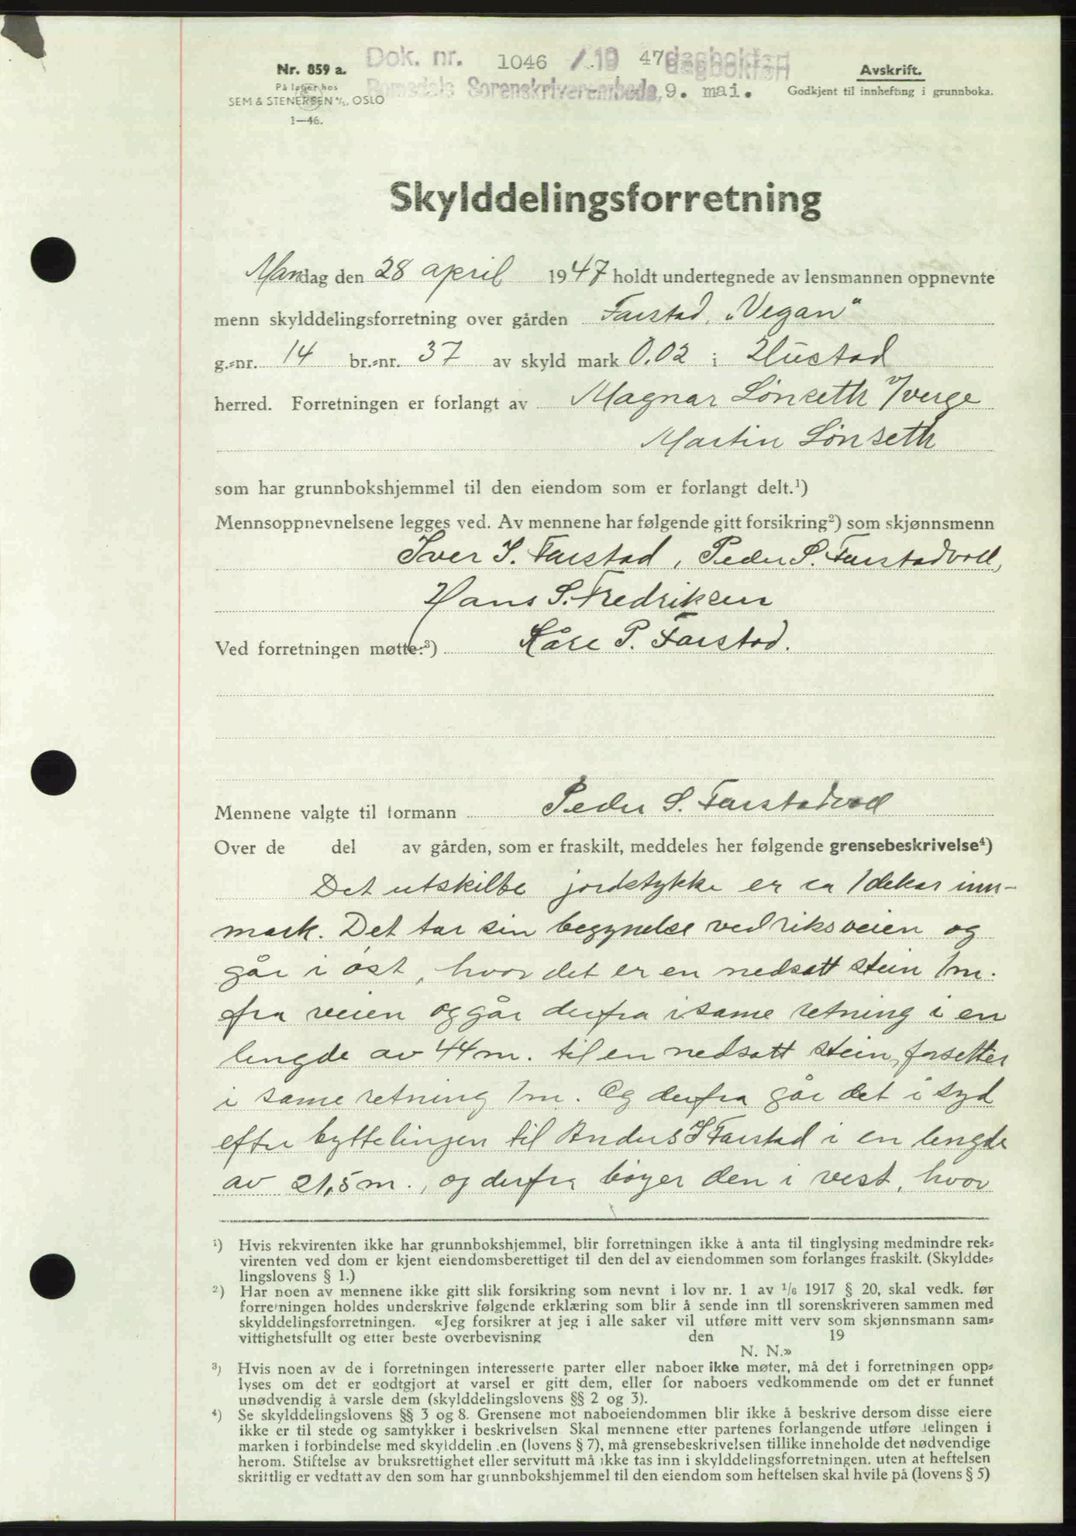 Dok. nr. 1046 / 19 47 dagbokført
Romsdals Sorenskriverembede, 9. mai.
Nr. 859 a.
På lager hos
SEM & STENERSEN A/S, OSLO
1—46.
Avskrift.
Godkjent til innhefting i grunnboka.
Skylddelingsforretning
Mandag den 28 april 1947 holdt undertegnede av lensmannen oppnevnte
menn skylddelingsforretning over gården Farstad, „Vegan"
g.-nr. 14 br.-nr. 37 av skyld mark 0.02 i Hustad
herred. Forretningen er forlangt av Magnar Lønseth v/verge
Martin Lønseth
som har grunnbokshjemmel til den eiendom som er forlangt delt.¹)
Mennsoppnevnelsene legges ved. Av mennene har følgende gitt forsikring²) som skjønnsmenn
Iver I. Farstad, Peder S. Farstadvoll,
Hans S. Fredriksen
Ved forretningen møtte:³) Kåre P. Farstad.
Mennene valgte til formann Peder S. Farstadvoll
Over de del av gården, som er fraskilt, meddeles her følgende grensebeskrivelse⁴)
Det utskilte jordstykke er ca 1 dekar inn-
mark. Det tar sin begynelse ved riksveien og
går i øst, hvor det er en nedsatt stein 1 m.
fra veien og går derfra i same retning i en
lengde av 44 m. til en nedsatt stein, forsetter
i same retning 1 m. Og derfra går det i syd
efter byttelinjen til Anders S Farstad i en lengde
av 21,5 m., og derfra bøyer den i vest, hvor
¹) Hvis rekvirenten ikke har grunnbokshjemmel, blir forretningen ikke å anta til tinglysing medmindre rek-
virenten ved dom er kjent eiendomsberettiget til den del av eiendommen som forlanges fraskilt. (Skyldde-
lingslovens § 1.)
²) Har noen av mennene ikke gitt slik forsikring som nevnt i lov nr. 1 av 1/6 1917 § 20, skal vedk. før
forretningen holdes underskrive følgende erklæring som blir å sende inn til sorenskriveren sammen med
skylddelingsforretningen. «Jeg forsikrer at jeg i alle saker vil utføre mitt verv som skjønnsmann sam-
vittighetsfullt og etter beste overbevisning den 19
N. N.»
³) Hvis noen av de i forretningen interesserte parter eller naboer ikke møter, må det i forretningen opp-
lyses om det er godtgjort at varsel er gitt dem, eller for naboers vedkommende om det er funnet
unødvendig å varsle dem (skylddelingslovens §§ 2 og 3).
⁴) Se skylddelingslovens §§ 3 og 8. Grensene mot naboeiendommen blir ikke å beskrive dersom disse eiere
ikke er til stede og samtykker i beskrivelsen. Skal mennene etter partenes forlangende utføre delingen i
marken i forbindelse med skylddelingen (lovens § 7), må grensebeskrivelsen tillike inneholde det nødvendige
herom. Stiftelse av bruksrettighet eller servitutt må ikke tas inn i skylddelingsforretningen, uten at heftelsen
skriftlig er vedtatt av den som har grunnbokshjemmel til den eiendom som heftelsen skal hvile på (lovens § 5)